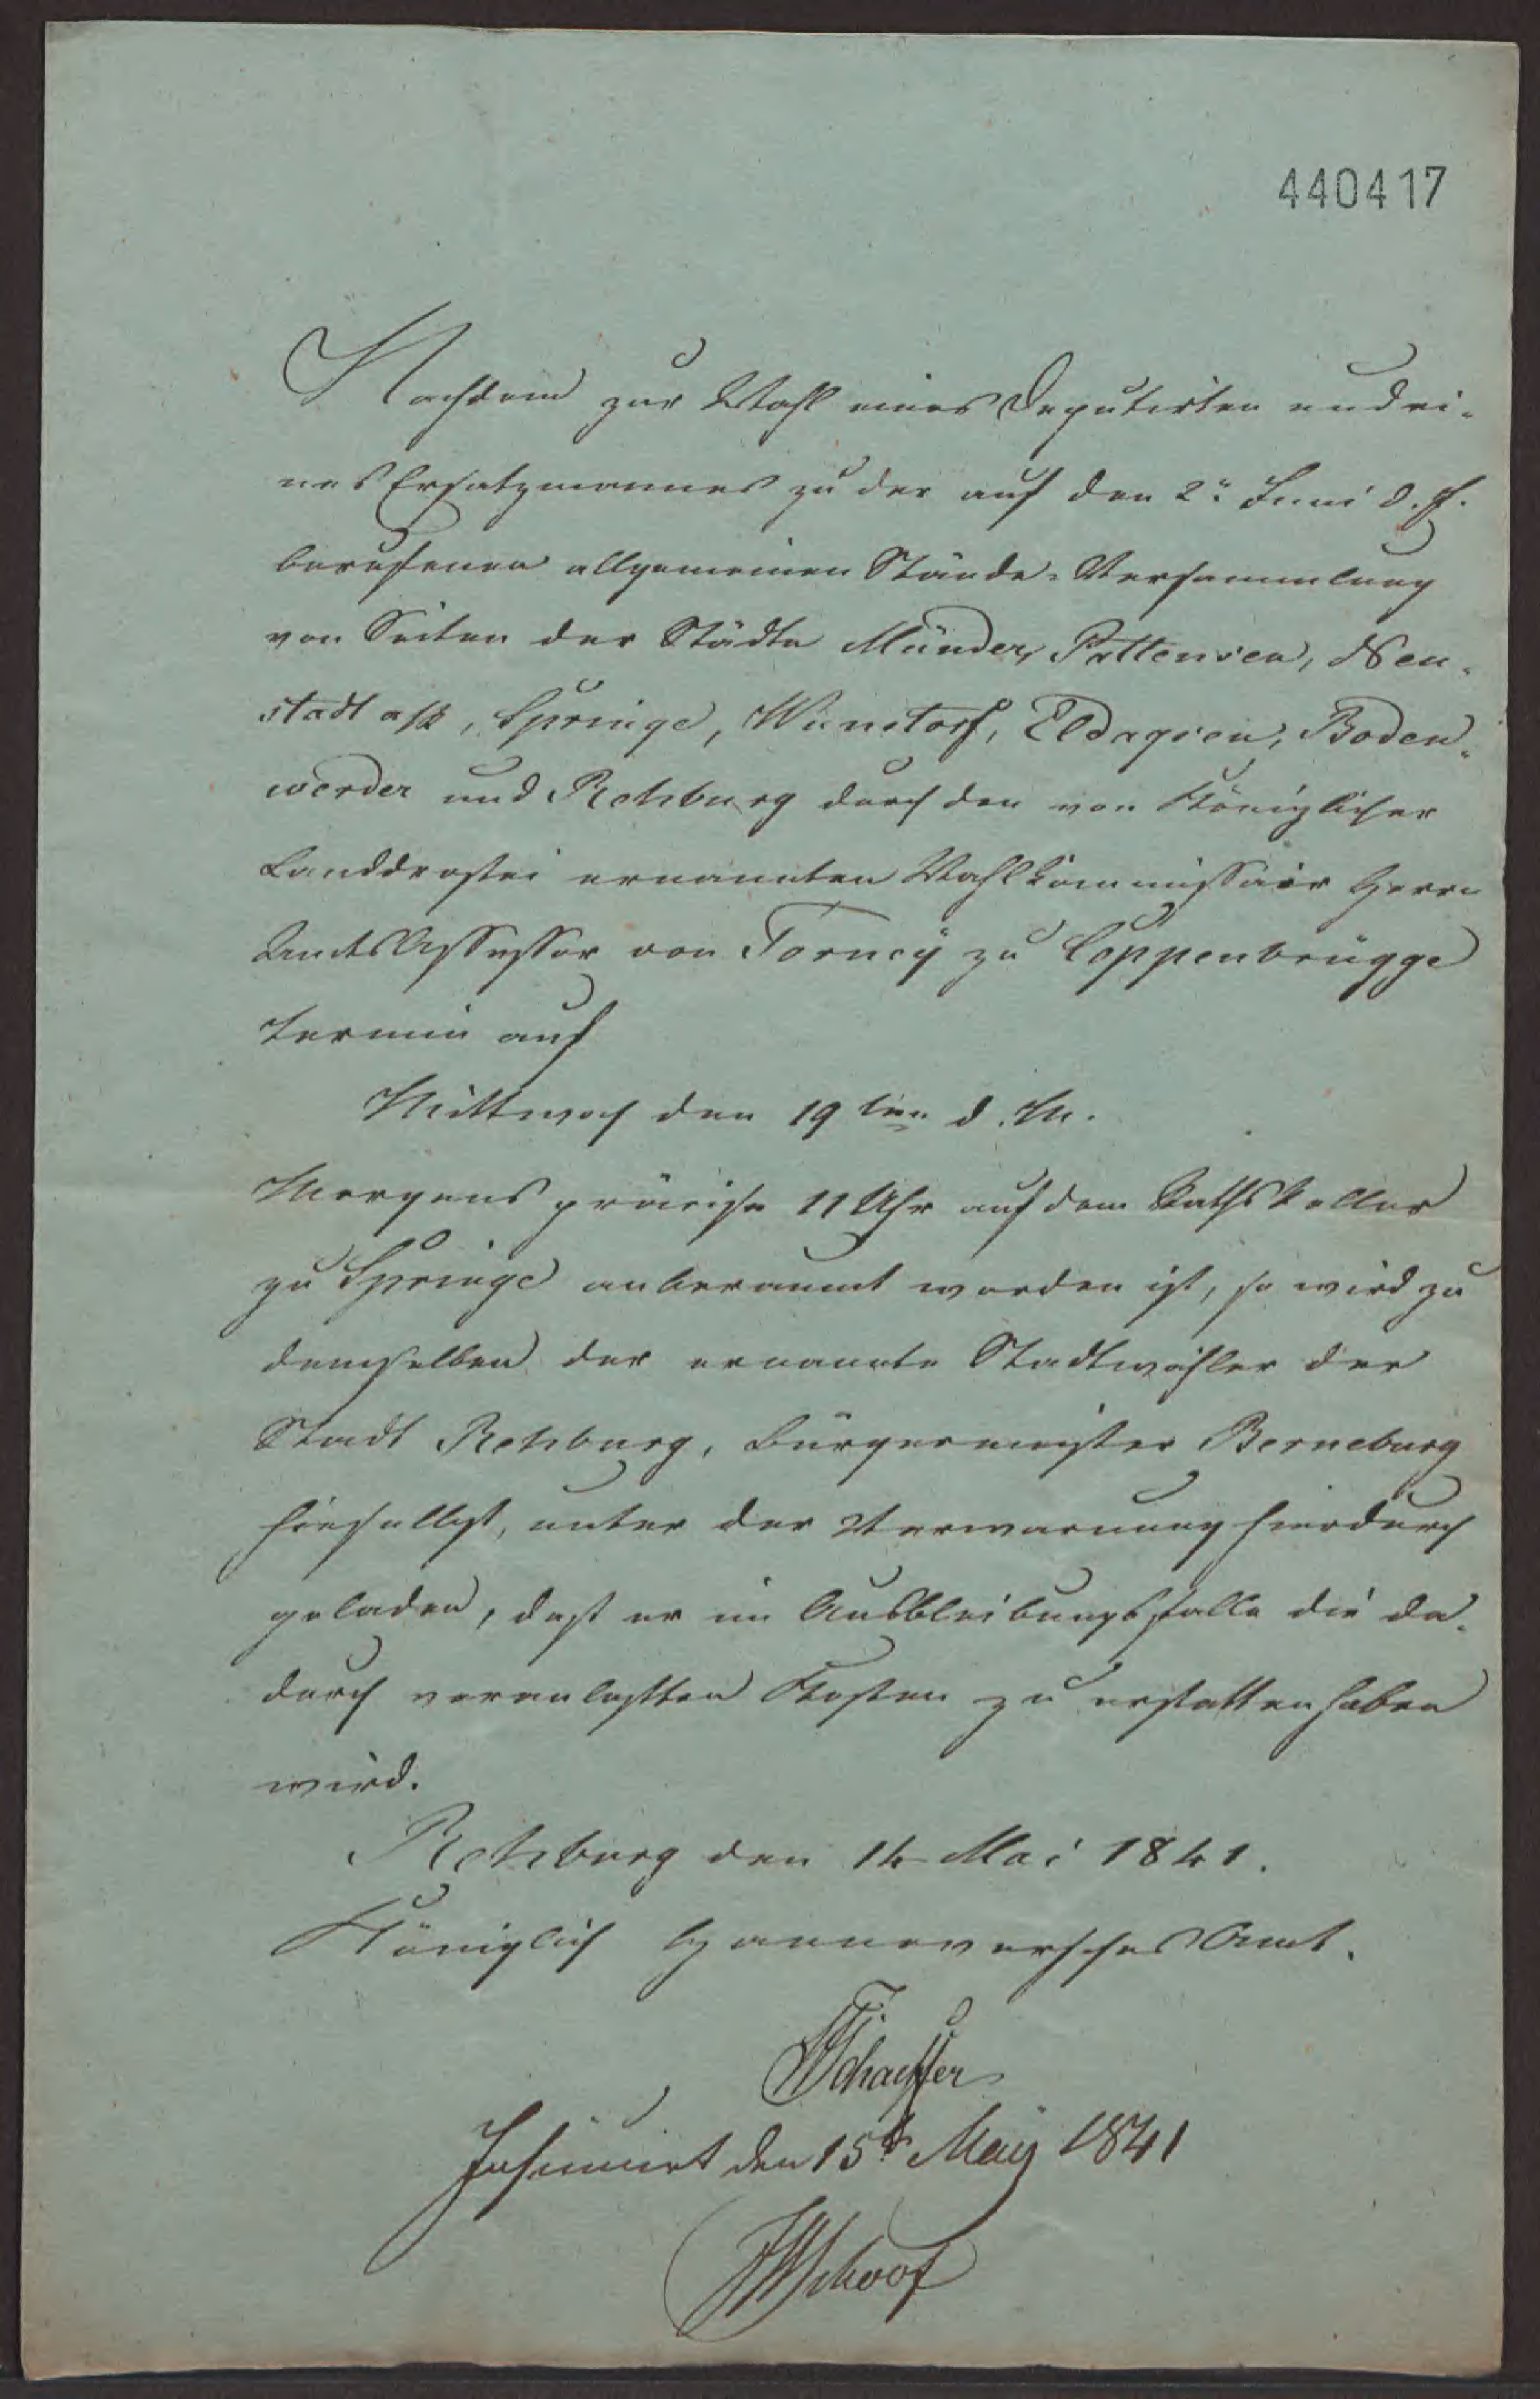 440417
Nachdem zur Wahl eines Deputirten und ei-
nes Ersatzmannes zu der auf den 2n Juni d. J.
berufenen allgemeinen Stände-Versammlung
von Seiten der Städte Münder, Pattensen, Neu-
stadt a/R, Springe, Wunstorf, Eldagsen, Boden-
werder und Rehburg durch den von Königlicher
Landdrostei ernannten Wahlkommissair Herrn
Amts Assessor von Torney zu Coppenbrügge
Termin auf
Mittwoch den 19ten d. M.
Morgens präcise 11 Uhr auf dem Rathskeller
zu Springe anberaumt worden ist, so wird zu
demselben der ernannte Stadtwähler der
Stadt Rehburg, Bürgermeister Berneburg
hieselbst, unter der Verwarnung hierdurch
geladen, daß er im Ausbleibungsfalle die da-
durch veranlaßten Kosten zu erstatten haben
wird.
Rehburg den 14 Mai 1841.
Königlich Hannoversches Amt.
Schaeffer
Insinuirt den 15t May 1841
Schoof